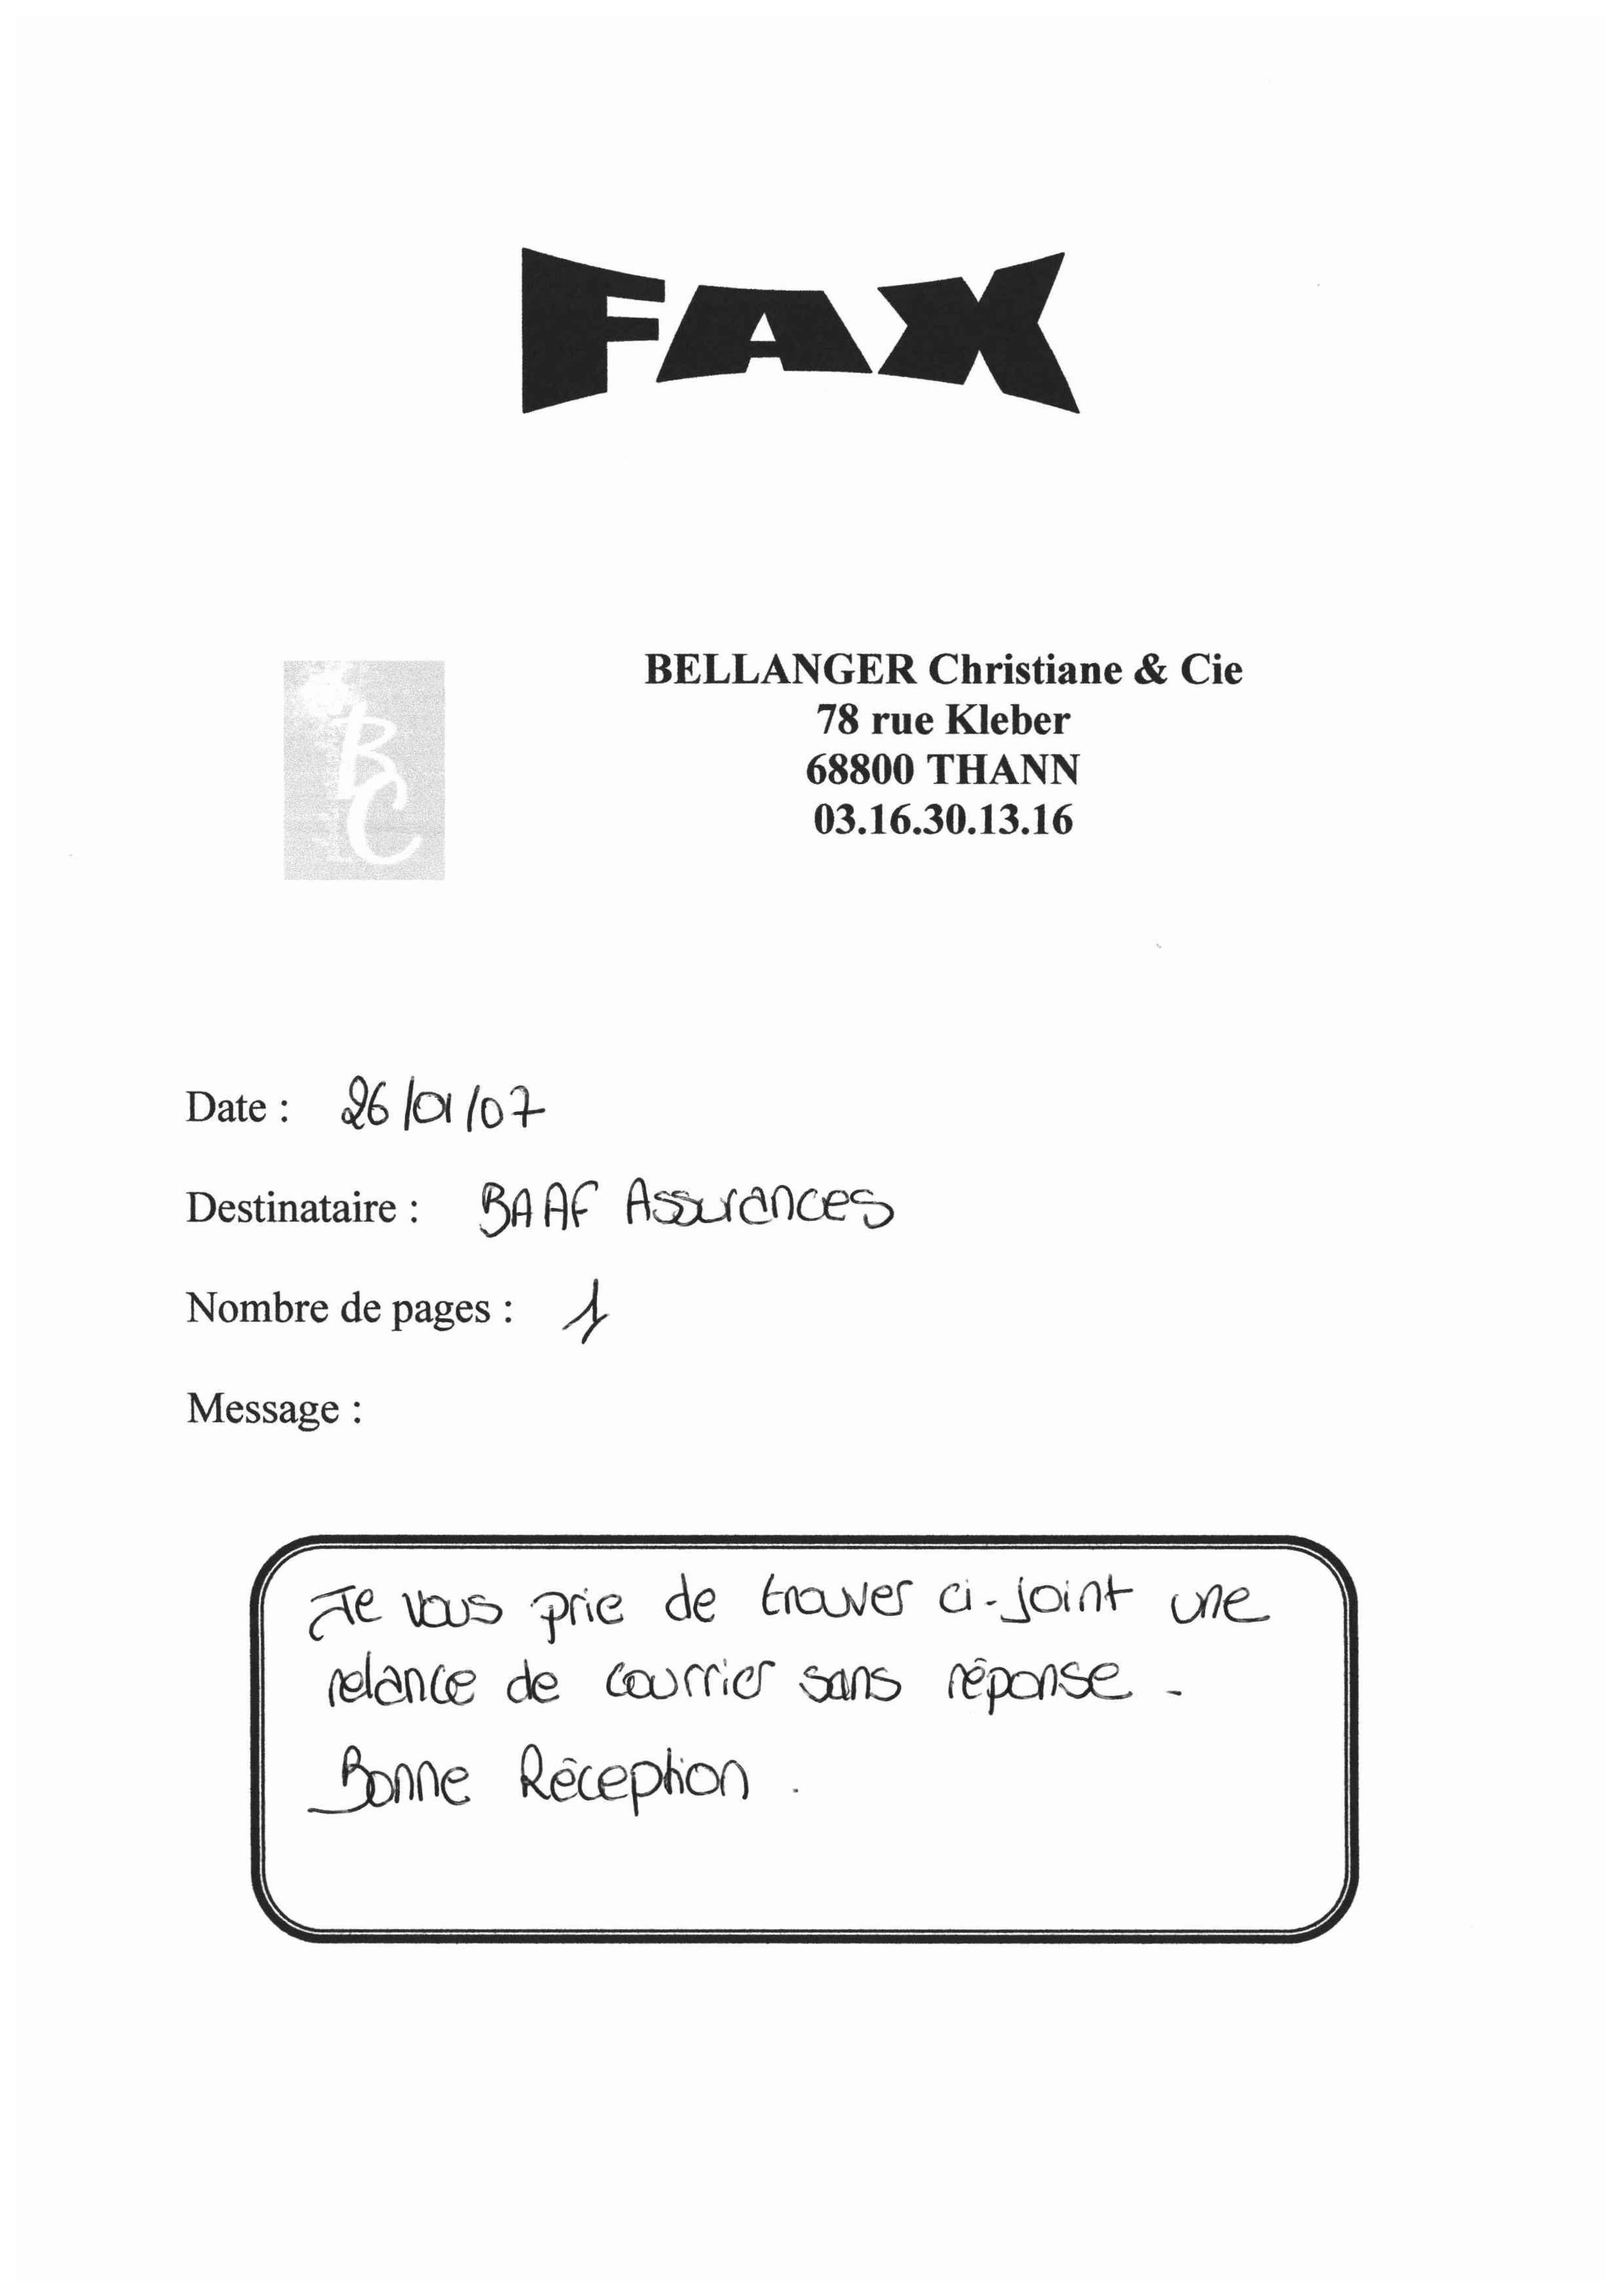 FAX
BC
BELLANGER Christiane & Cie
78 rue Kleber
68800 THANN
03.16.30.13.16
Date : 26/01/07
Destinataire : BAAF Assurances
Nombre de pages : 1
Message :
Je vous prie de trouver ci-joint une
relance de courrier sans réponse.
Bonne Réception.